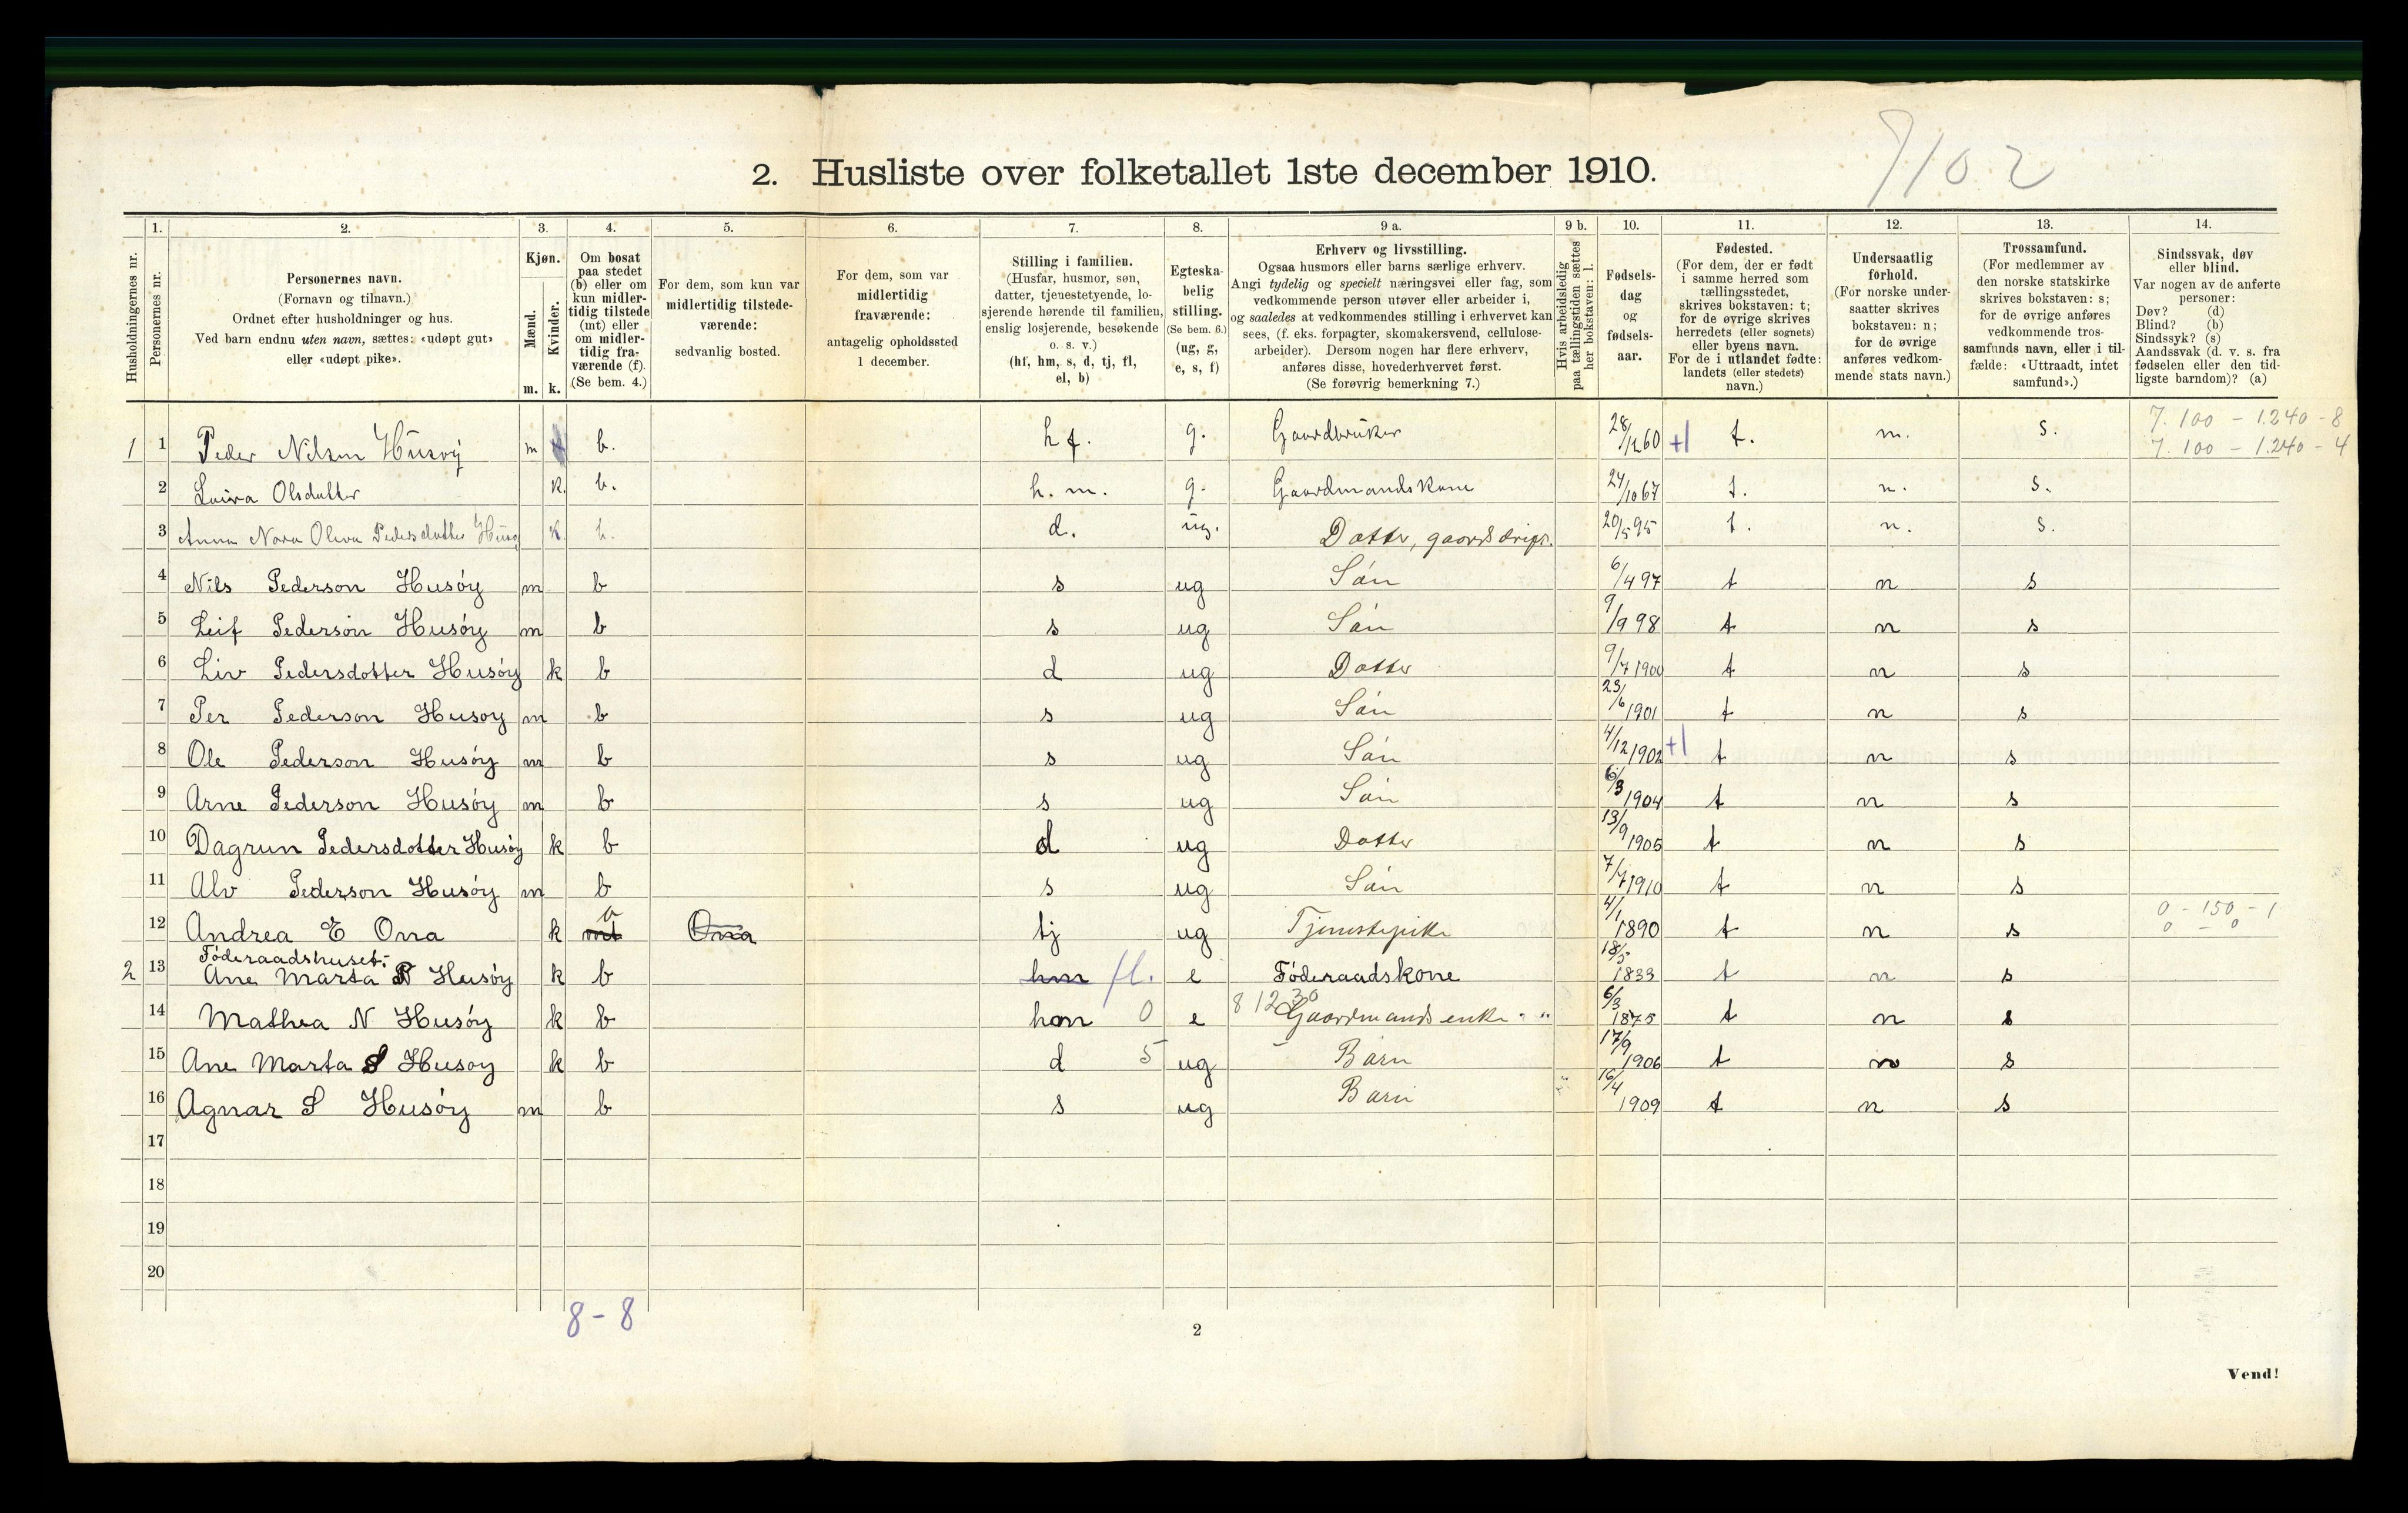 9102
2. Husliste over folketallet 1ste december 1910.
Husholdningernes nr.
1.
Personernes nr.
2.
Personernes navn.
(Fornavn og tilnavn.)
Ordnet efter husholdninger og hus.
Ved barn endnu uten navn, sættes: «udøpt gut»
eller «udøpt pike».
3.
Kjøn.
Mænd.
Kvinder.
m. k.
4.
Om bosat
paa stedet
(b) eller om
kun midler-
tidig tilstede
(mt) eller
om midler-
tidig fra-
værende (f).
(Se bem. 4.)
5.
For dem, som kun var
midlertidig tilstede-
værende:
sedvanlig bosted.
6.
For dem, som var
midlertidig
fraværende:
antagelig opholdssted
1 december.
7.
Stilling i familien.
(Husfar, husmor, søn,
datter, tjenestetyende, lo-
sjerende hørende til familien,
enslig losjerende, besøkende
o. s. v.)
(hf, hm, s, d, tj, fl,
el, b)
8.
Egteska-
belig
stilling.
(Se bem. 6.)
(ug, g,
e, s, f)
9 a.
Erhverv og livsstilling.
Ogsaa husmors eller barns særlige erhverv.
Angi tydelig og specielt næringsvei eller fag, som
vedkommende person utøver eller arbeider i,
og saaledes at vedkommendes stilling i erhvervet kan
sees, (f. eks. forpagter, skomakersvend, cellulose-
arbeider). Dersom nogen har flere erhverv,
anføres disse, hovederhvervet først.
(Se forøvrig bemerkning 7.)
9 b.
Hvis arbeidsledig
paa tællingstiden sættes
her bokstaven: l.
10.
Fødsels-
dag
og
fødsels-
aar.
11.
Fødested.
(For dem, der er født
i samme herred som
tællingsstedet,
skrives bokstaven: t;
for de øvrige skrives
herredets (eller sognets)
eller byens navn.
For de i utlandet fødte:
landets (eller stedets)
navn.)
12.
Undersaatlig
forhold.
(For norske under-
saatter skrives
bokstaven: n;
for de øvrige
anføres vedkom-
mende stats navn.)
13.
Trossamfund.
(For medlemmer av
den norske statskirke
skrives bokstaven: s;
for de øvrige anføres
vedkommende tros-
samfunds navn, eller i til-
fælde: «Uttraadt, intet
samfund».)
14.
Sindssvak, døv
eller blind.
Var nogen av de anførte
personer:
Døv? (d)
Blind? (b)
Sindssyk? (s)
Aandssvak (d. v. s. fra
fødselen eller den tid-
ligste barndom)? (a)
1 1 Peder Nilsen Husøy m b. hf. g. Gaardbruker 28/12 60 +1 t. n. s. 7.100 - 1.240 - 8
7.100 - 1.240 - 4
2 Lovisa Olsdatter k. b. h. m. g. Gaardmandskone 24/10 67 t. n. s.
3 Anna Nora Olova Pedersdatter Husø k b. d. ug. Datter, gaardsdrift. 20/5 95 t. n. s.
4 Nils Pederson Husøy m b s ug Søn 6/4 97 t n s
5 Leif Pederson Husøy m b s ug Søn 9/9 98 t n s
6 Liv Pedersdotter Husøy k b d ug Datter 9/7 1900 t n s
7 Per Pederson Husoy m b s ug Søn 23/6 1901 t n s
8 Ole Pederson Husøy m b s ug Søn 4/12 1902 +1 t n s
9 Arne Pederson Husøy m b s ug Søn 6/3 1904 t n s
10 Dagrun Pedersdotter Husøy k b d ug Datter 13/9 1905 t n s
11 Alv Pederson Husøy m b s ug Søn 7/7 1910 t n s
12 Andrea E Ona k mt b Ona tj ug Tjenestepike 4/1 1890 t n s 0 - 150 - 1
0 - 0
Føderaadshuset:
2 13 Ane Marta P Husøy k b hm fl. e Føderaadskone 18/5 1833 t n s
14 Mathea N Husøy k b hm 0 e 8 12 30 Gaardmandsenke " " 6/3 1875 t n s
15 Ane Marta S Husøy k b d 5 ug Barn 17/9 1906 t n s
16 Agnar S Husøy m b s ug Barn 16/4 1909 t n s
17
18
19
20
8 - 8
2
Vend!